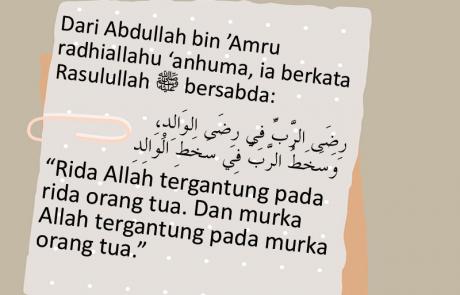 Dari Abdullah bin ’Amru
radhiallahu ‘anhuma, ia berkata
Rasulullah ﷺ bersabda:
رِضَى الرَّبِّ فِي رِضَى الوَالِدِ،
وَسَخَطُ الرَّبِّ فِي سَخَطِ الْوَالِدِ
“Rida Allah tergantung pada
rida orang tua. Dan murka
Allah tergantung pada murka
orang tua.”